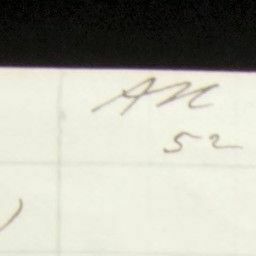 AM
52